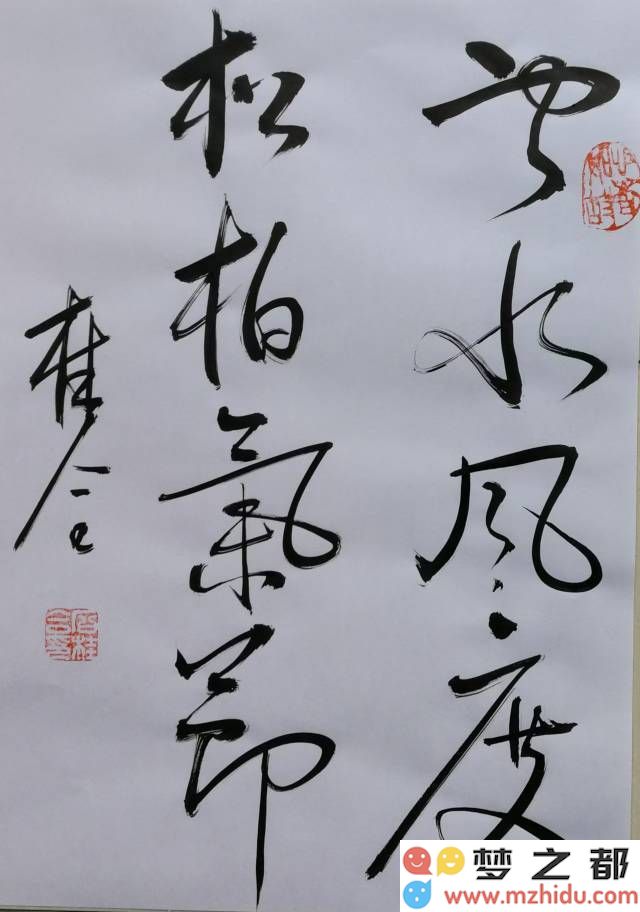 雲水风度
松柏氣節
桂全
梦之都
www.mzhidu.com